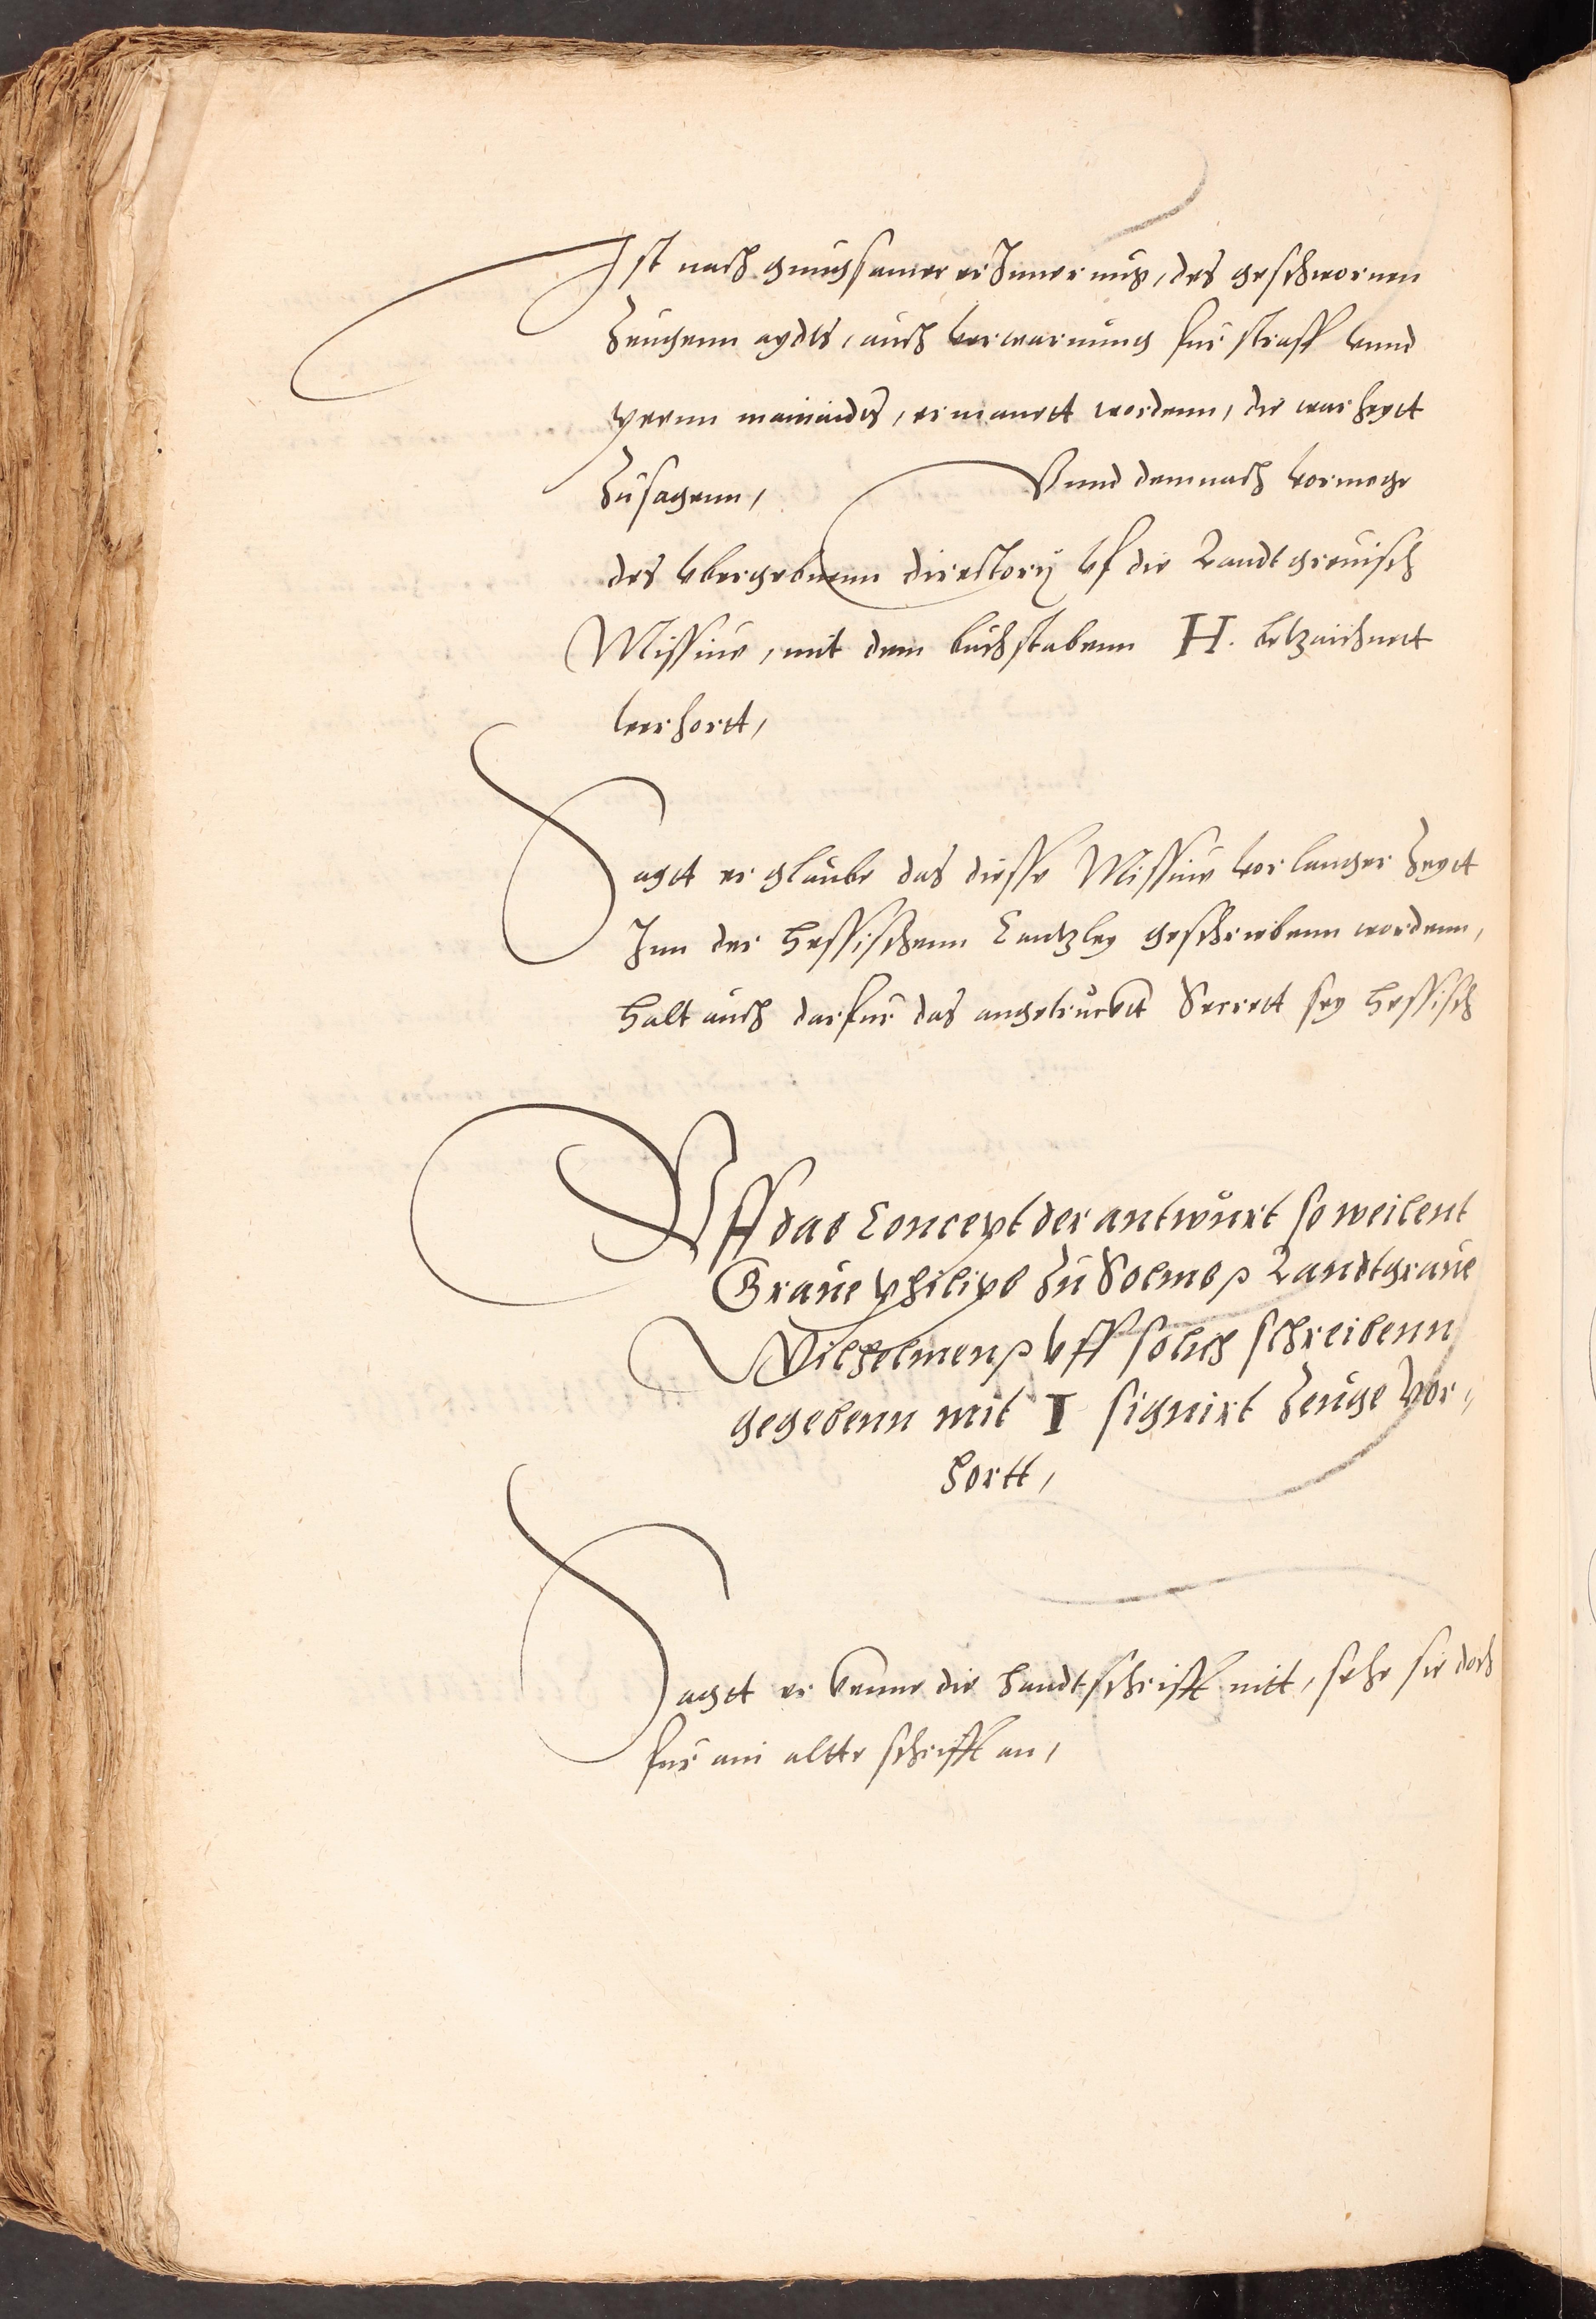 Ist nach gnugsamer erJnnernuß, des geschwornen
Zeugenn aydts, auch verwarnung fur straff vnnd
peenn mainaidts, ermanett wordenn, die warheytt
Zusagenn, Vnnd demnach vermoge
des vbergebnenn directory vf die Landtgreuisch
Missiue, mit dem buchstabenn H. betzaichnett
verhortt,
Sagtt er glaube das diesse Missiue vor langer Zeytt
Jnn der hessischenn Cantzley geschriebenn wordenn,
halt auch darfur das angetruckt Secrett sey hessisch
Vff das Concept der antwurt so weilent
Graue Philips Zu Solms Landtgraue
Wilhelmenn vff solich schreibenn
gegebenn mit I signirt Zeuge ver¬
hortt,
Sagtt er kenne die handtschrifft nitt, sehe sie doch
fur ain altte schrifft an,